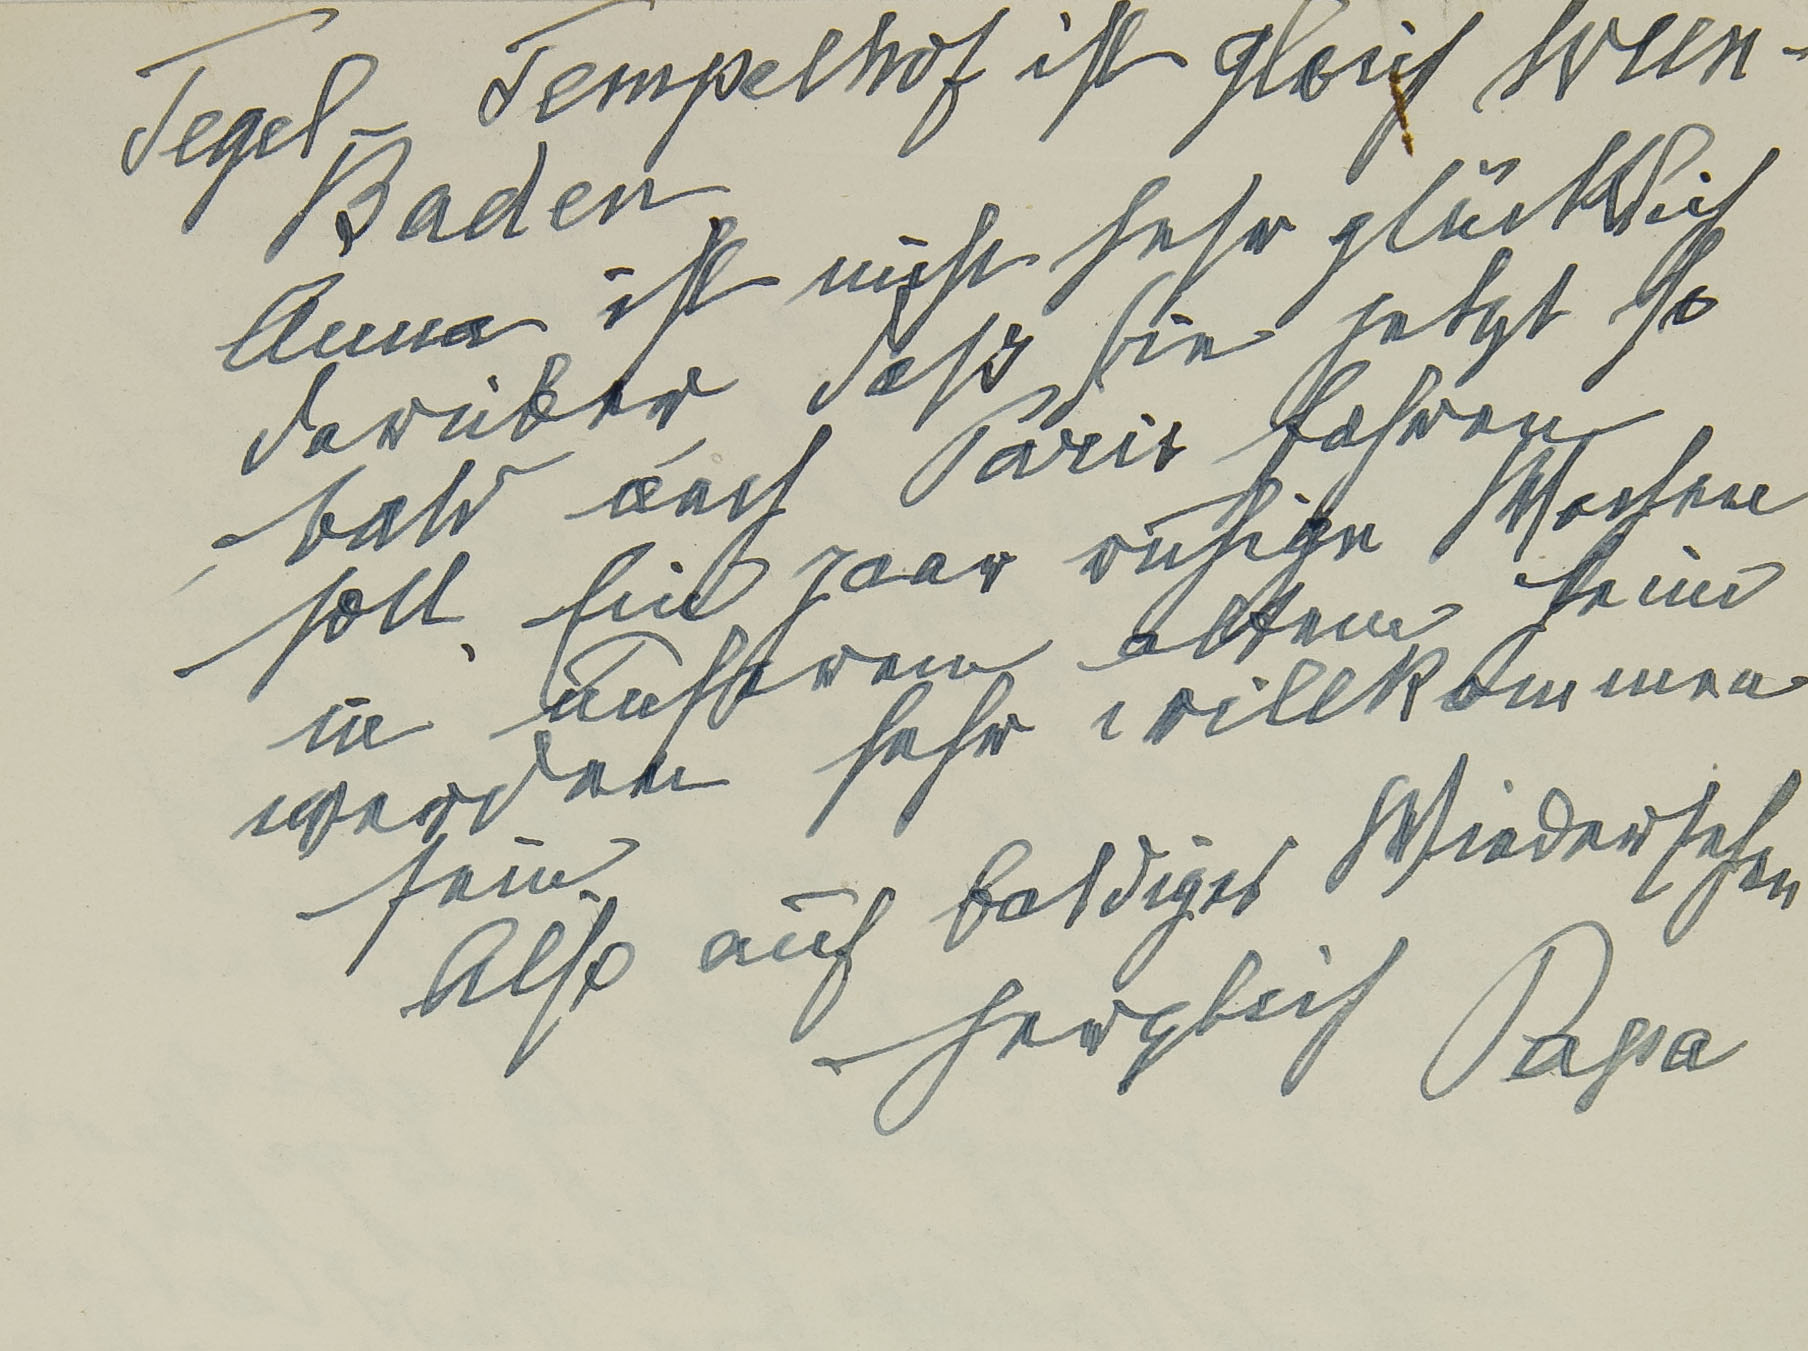 Tegel – Tempelhof ist gleich Wien –
Baden
Anna ist nicht sehr glücklich
darüber daß sie jetzt so
bald nach Paris fahren
soll. Ein paar ruhige Wochen
in unserem alten Heim
werden sehr willkommen
sein.
Also auf baldiges Wiedersehen
herzlich Papa